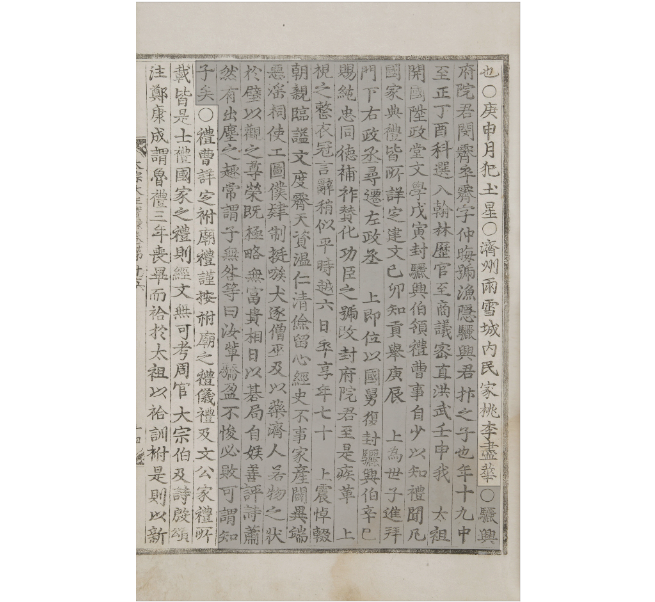 也○庚申月犯土星○濟州雨雪城內民家桃李盡華○驪興
府院君閔霽卒霽字仲晦號漁隱驪興君抃之子也年十九中
至正丁酉科選入翰林歷官至商議密直洪武壬申我　太祖
開國陞政堂文學戊寅封驪興伯領禮曹事自少以知禮聞凡
國家典禮皆所詳定建文己卯知貢擧庚辰　上爲世子進拜
門下右政丞尋遷左政丞　上卽位以國舅復封驪興伯辛巳
賜純忠同德補祚贊化功臣之號改封府院君至是疾革　上
視之整衣冠言辭稍似平時越六日卒享年七十　上震悼輟
朝親臨謚文度霽天資溫仁淸儉留心經史不事家産闢異端
惡淫祠使工圖僕隷制挺嗾犬逐僧巫及以藥濟人畜物之狀
於壁以觀之尊榮旣極略無富貴相日以碁局自娛善評詩蕭
然有出塵之趣常謂子無咎等曰汝輩驕盈不悛必敗可謂知
子矣○禮曹詳定祔廟禮謹按祔廟之禮儀禮及文公家禮所
載皆是士禮國家之禮則經文無可考周官大宗伯及詩殷頌
注鄭康成謂魯禮三年喪畢而祫於太祖以祫訓祔是則以新